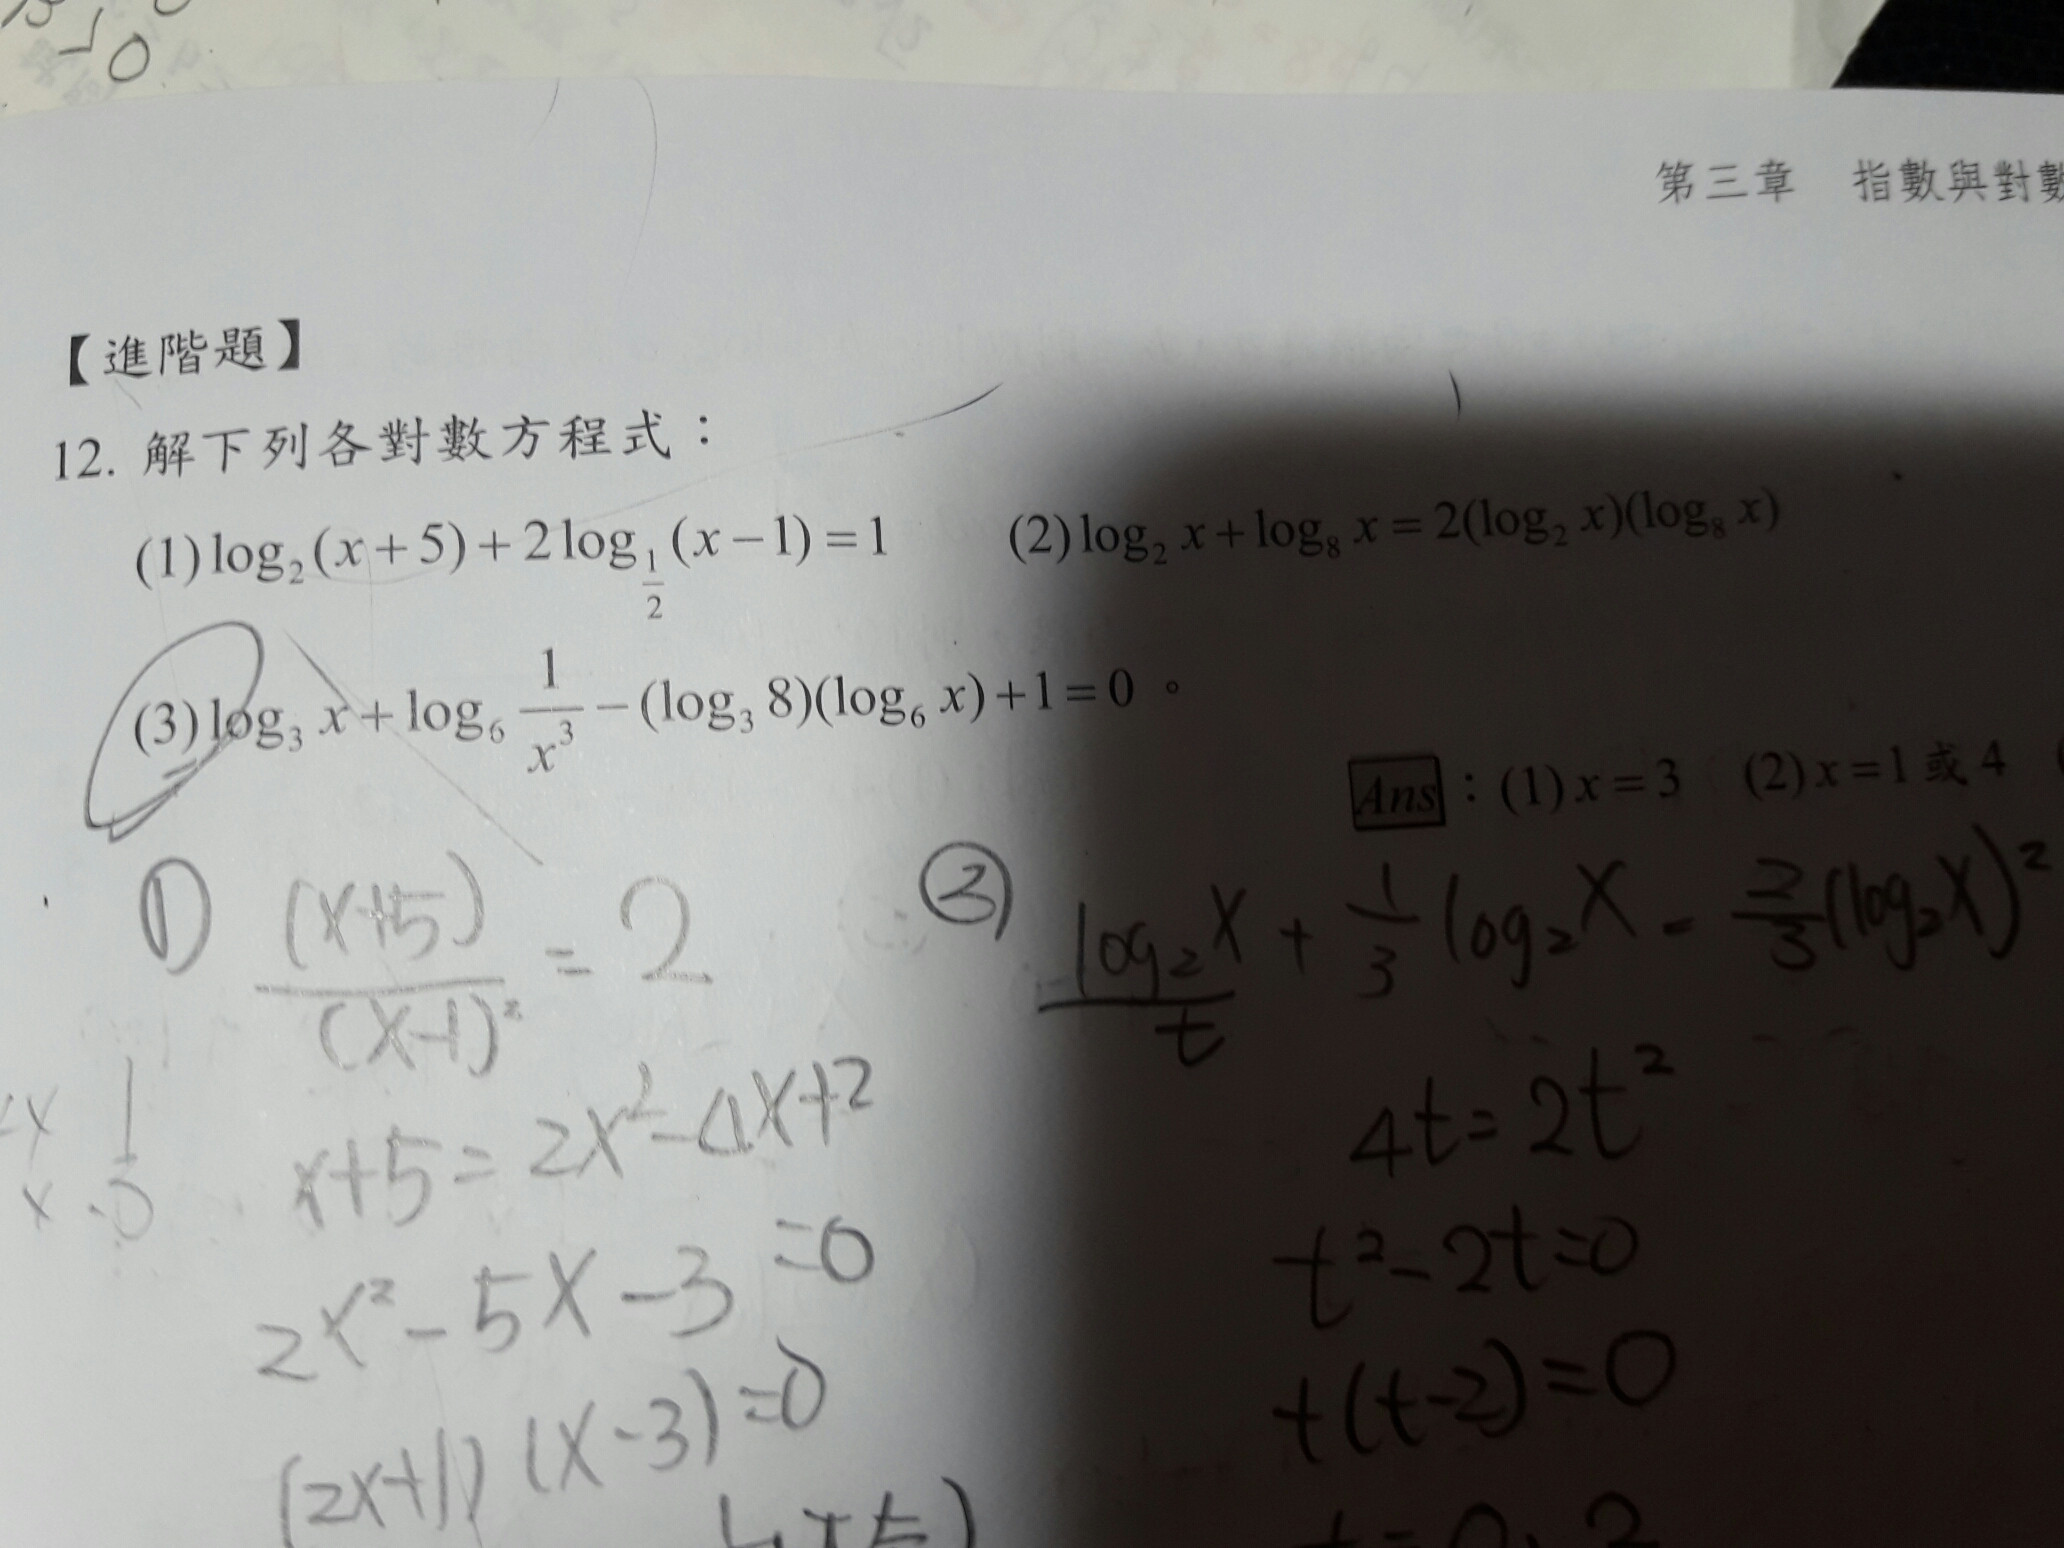 第三章 指數與對數
【進階題】
12. 解下列各對數方程式：
(1) log₂(x+5)+2log_{1/2}(x−1)=1 (2) log₂ x+log₈ x=2(log₂ x)(log₈ x)
(3) log₃ x+log₆ 1/x³−(log₃ 8)(log₆ x)+1=0。
Ans：(1) x=3 (2) x=1 或 4
① (x+5)/(x-1)² = 2
x+5=2x²-4x+2
2x²-5x-3=0
(2x+1)(x-3)=0
② log₂X + 1/3 log₂X = 2/3(log₂X)²
t
4t=2t²
t²-2t=0
t(t-2)=0